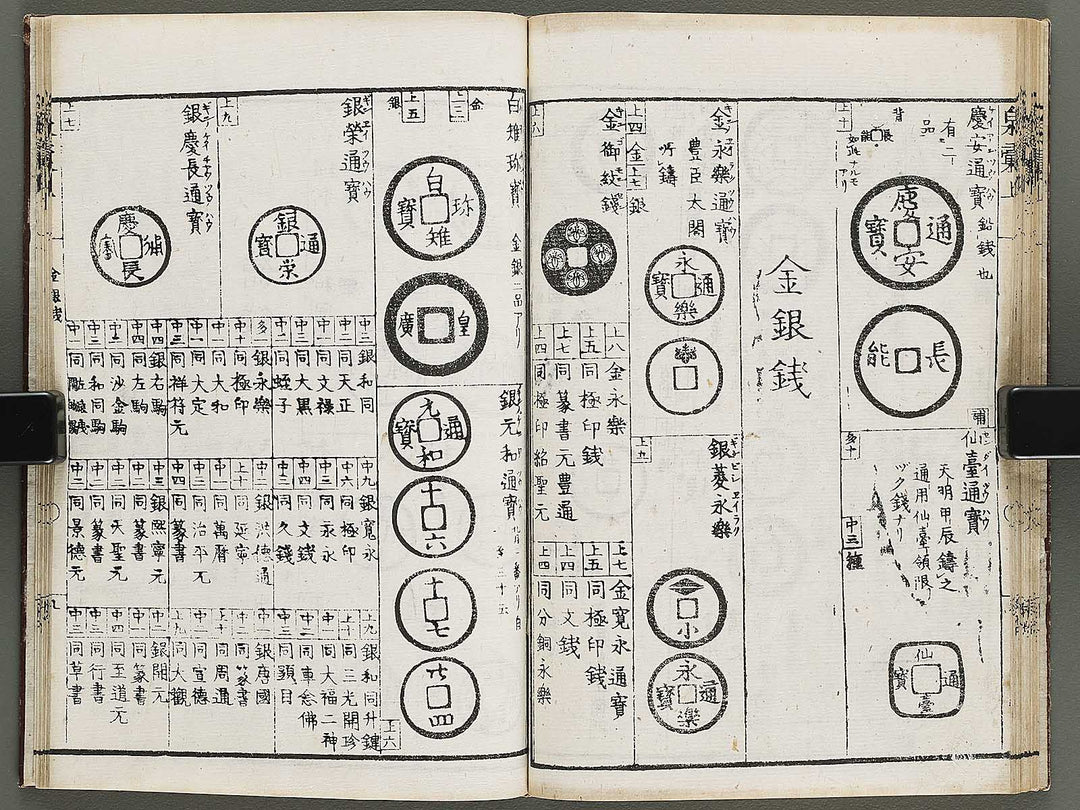 慶安通寳
鉛銭也
有二
品
背
長
如此ナルモ
アリ
上十
慶安通寳
長能
補
仙臺通寳
天明甲辰鑄之
通用仙臺領限
ヅク銭ナリ
中三種
仙臺通寳
金銀銭
金永樂通寳
豊臣太閤
所鑄
上四
金
上七
銀
永樂通寳
上九
銀菱永樂
小
永樂通寳
上八
金御紋銭
上八
金永樂
上五
同極印銭
上七
同篆書元豊通
上四
同極印紹聖元
上七
金寛永通寳
上五
同極印銭
上四
同文銭
上四
同分銅永樂
白雉珎寳
金銀二品アリ
上二
金
上五
銀
白雉珎寳
皇廣
銀元和通寳
元和通寳
十六
十七
廿四
上六
銀榮通寳
銀栄通寳
上九
銀慶長通寳
慶長
上七
中三
銀和同
中二
同天正
中二
同文禄
中三
同大黒
中一
同蛭子
銀永樂
中十
同極印
中一
同大和
中一
同大定
中三
同祥符元
中四
銀右駒
中四
同左駒
中三
同沙金駒
中二
同和同駒
中一
中九
銀寛永
中六
同極印
中一
同永永
中三
同文銭
中三
同久銭
中二
銀洪徳通
上十
同延寧
中一
同萬暦
中一
同治平元
中四
同篆書
中三
銀熙寧元
中二
同篆書
中二
同天聖元
中一
同篆書
中二
同景徳元
上九
銀和同升鍵
上十
同三光開珎
中一
同大福二神
中二
同車念佛
中三
同顯目
中一
銀唐國
中二
同篆書
上十
同周通
中一
同宣徳
上九
同大觀
中二
銀開元
中一
同篆書
中四
同至道元
中三
同行書
中三
同草書
金銀銭
九